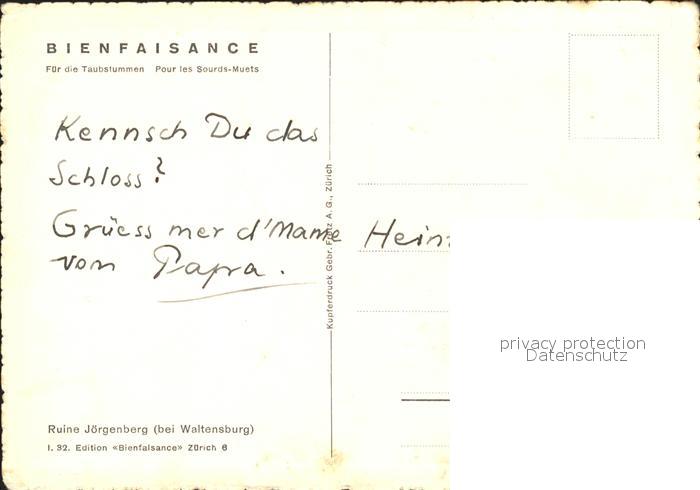 BIENFAISANCE
Für die Taubstummen Pour les Sourds-Muets
Kennsch Du das
Schloss?
Grüess mer d'Mame
vom Papa.
Kupferdruck Gebr. Fretz A.G., Zürich
Ruine Jörgenberg (bei Waltensburg)
I. 32. Edition «Bienfaisance» Zürich 6
privacy protection
Datenschutz